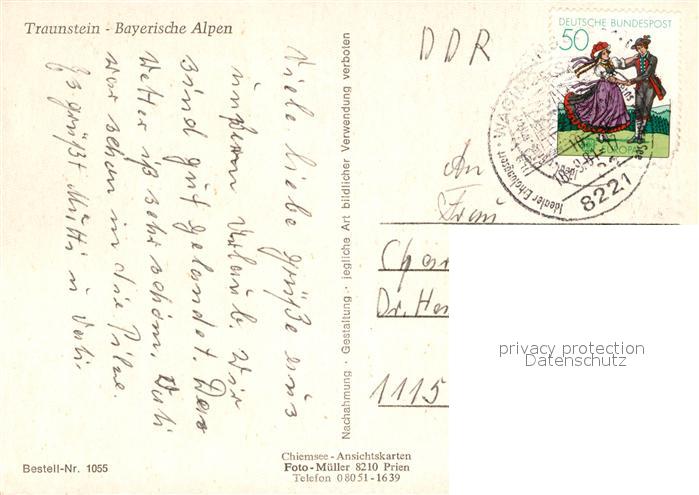 Traunstein - Bayerische Alpen
Viele liebe Grüße aus
unserem Urlaub. Wir
sind gut gelandet. Das
Wetter ist sehr schön. Vati
war schon in die Pilze.
Es grüßt Mutti u Vati.
Bestell-Nr. 1055
Nachahmung · Gestaltung · jegliche Art bildlicher Verwendung verboten
Chiemsee - Ansichtskarten
Foto - Müller 8210 Prien
Telefon 08051-1639
DDR
DEUTSCHE BUNDESPOST
50
8221
Idealer Erholungsort
An
Frau
Char
Dr. He
1115
privacy protection
Datenschutz